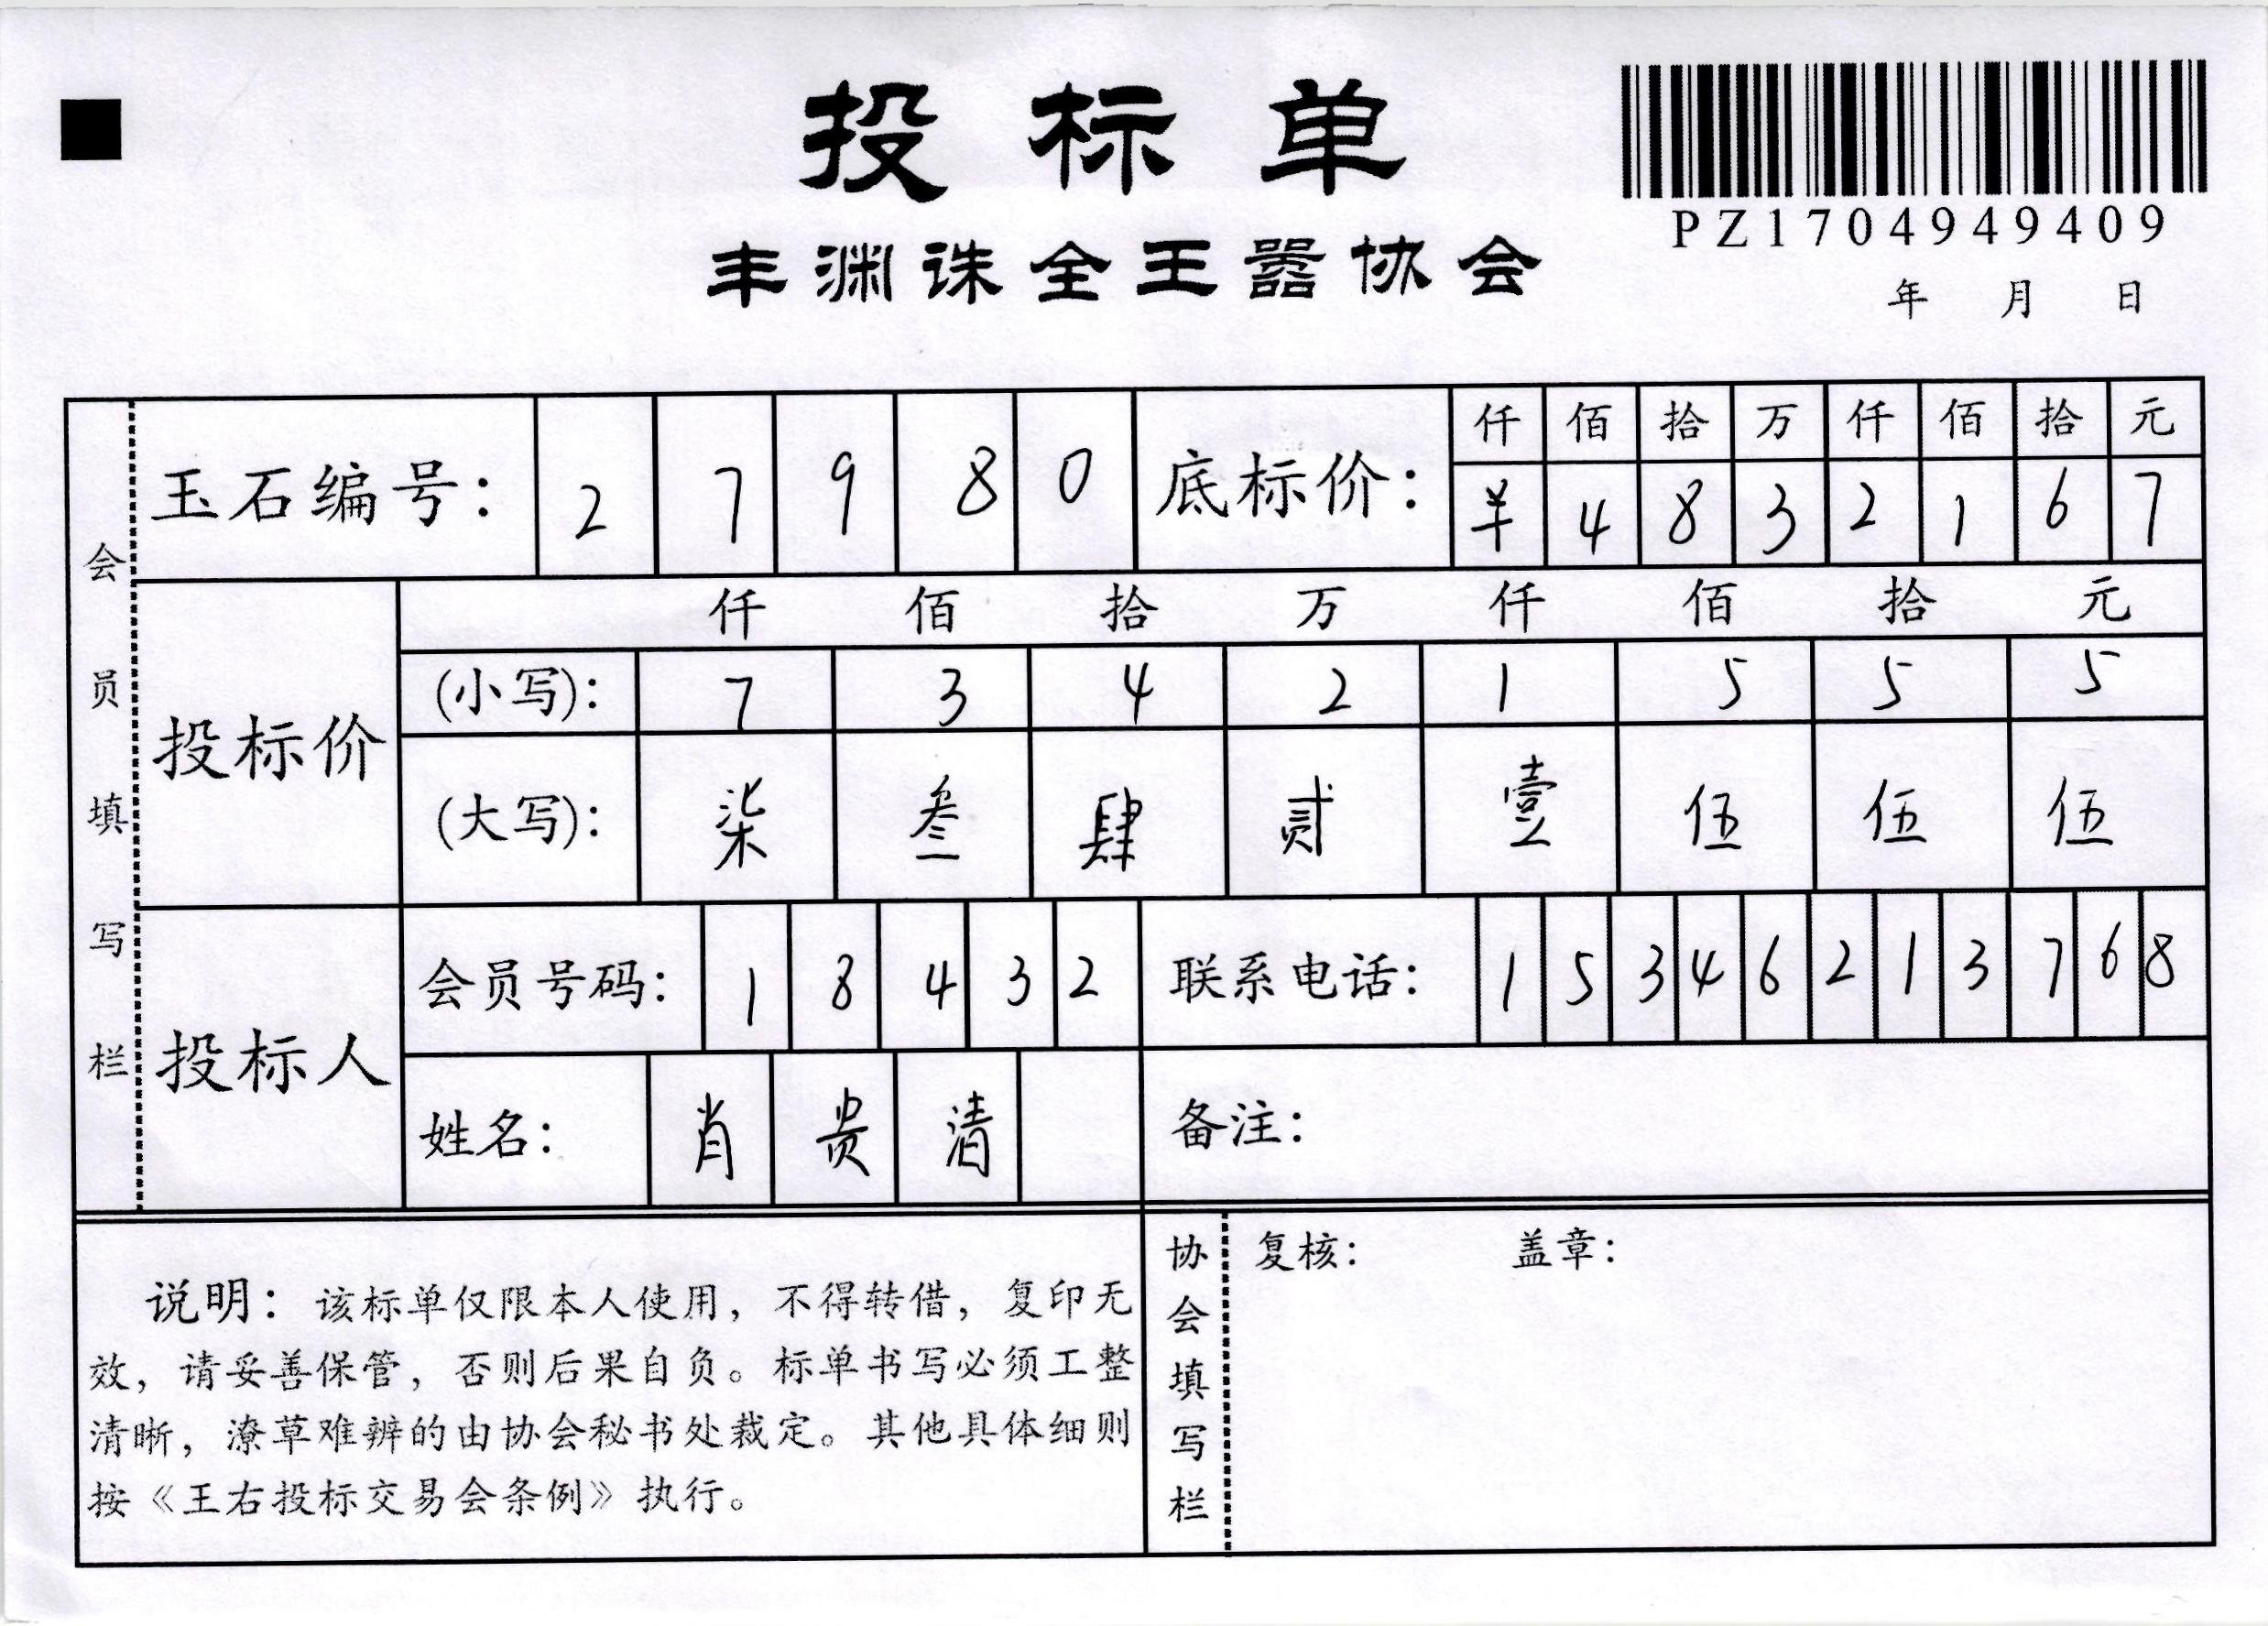 投标单
PZ1704949409
丰渊诛全王嚣协会
年 月 日
会员填写栏
玉石编号: 2 7 9 8 0 底标价: 仟 佰 拾 万 仟 佰 拾 元
¥ 4 8 3 2 1 6 7
投标价 仟 佰 拾 万 仟 佰 拾 元
(小写): 7 3 4 2 1 5 5 5
(大写): 柒 叁 肆 贰 壹 伍 伍 伍
投标人 会员号码: 1 8 4 3 2 联系电话: 1 5 3 4 6 2 1 3 7 6 8
姓名: 肖 贵 清 备注:
说明: 该标单仅限本人使用, 不得转借, 复印无
效, 请妥善保管, 否则后果自负。标单书写必须工整
清晰, 潦草难辨的由协会秘书处裁定。其他具体细则
按《王右投标交易会条例》执行。
协会填写栏
复核: 盖章: